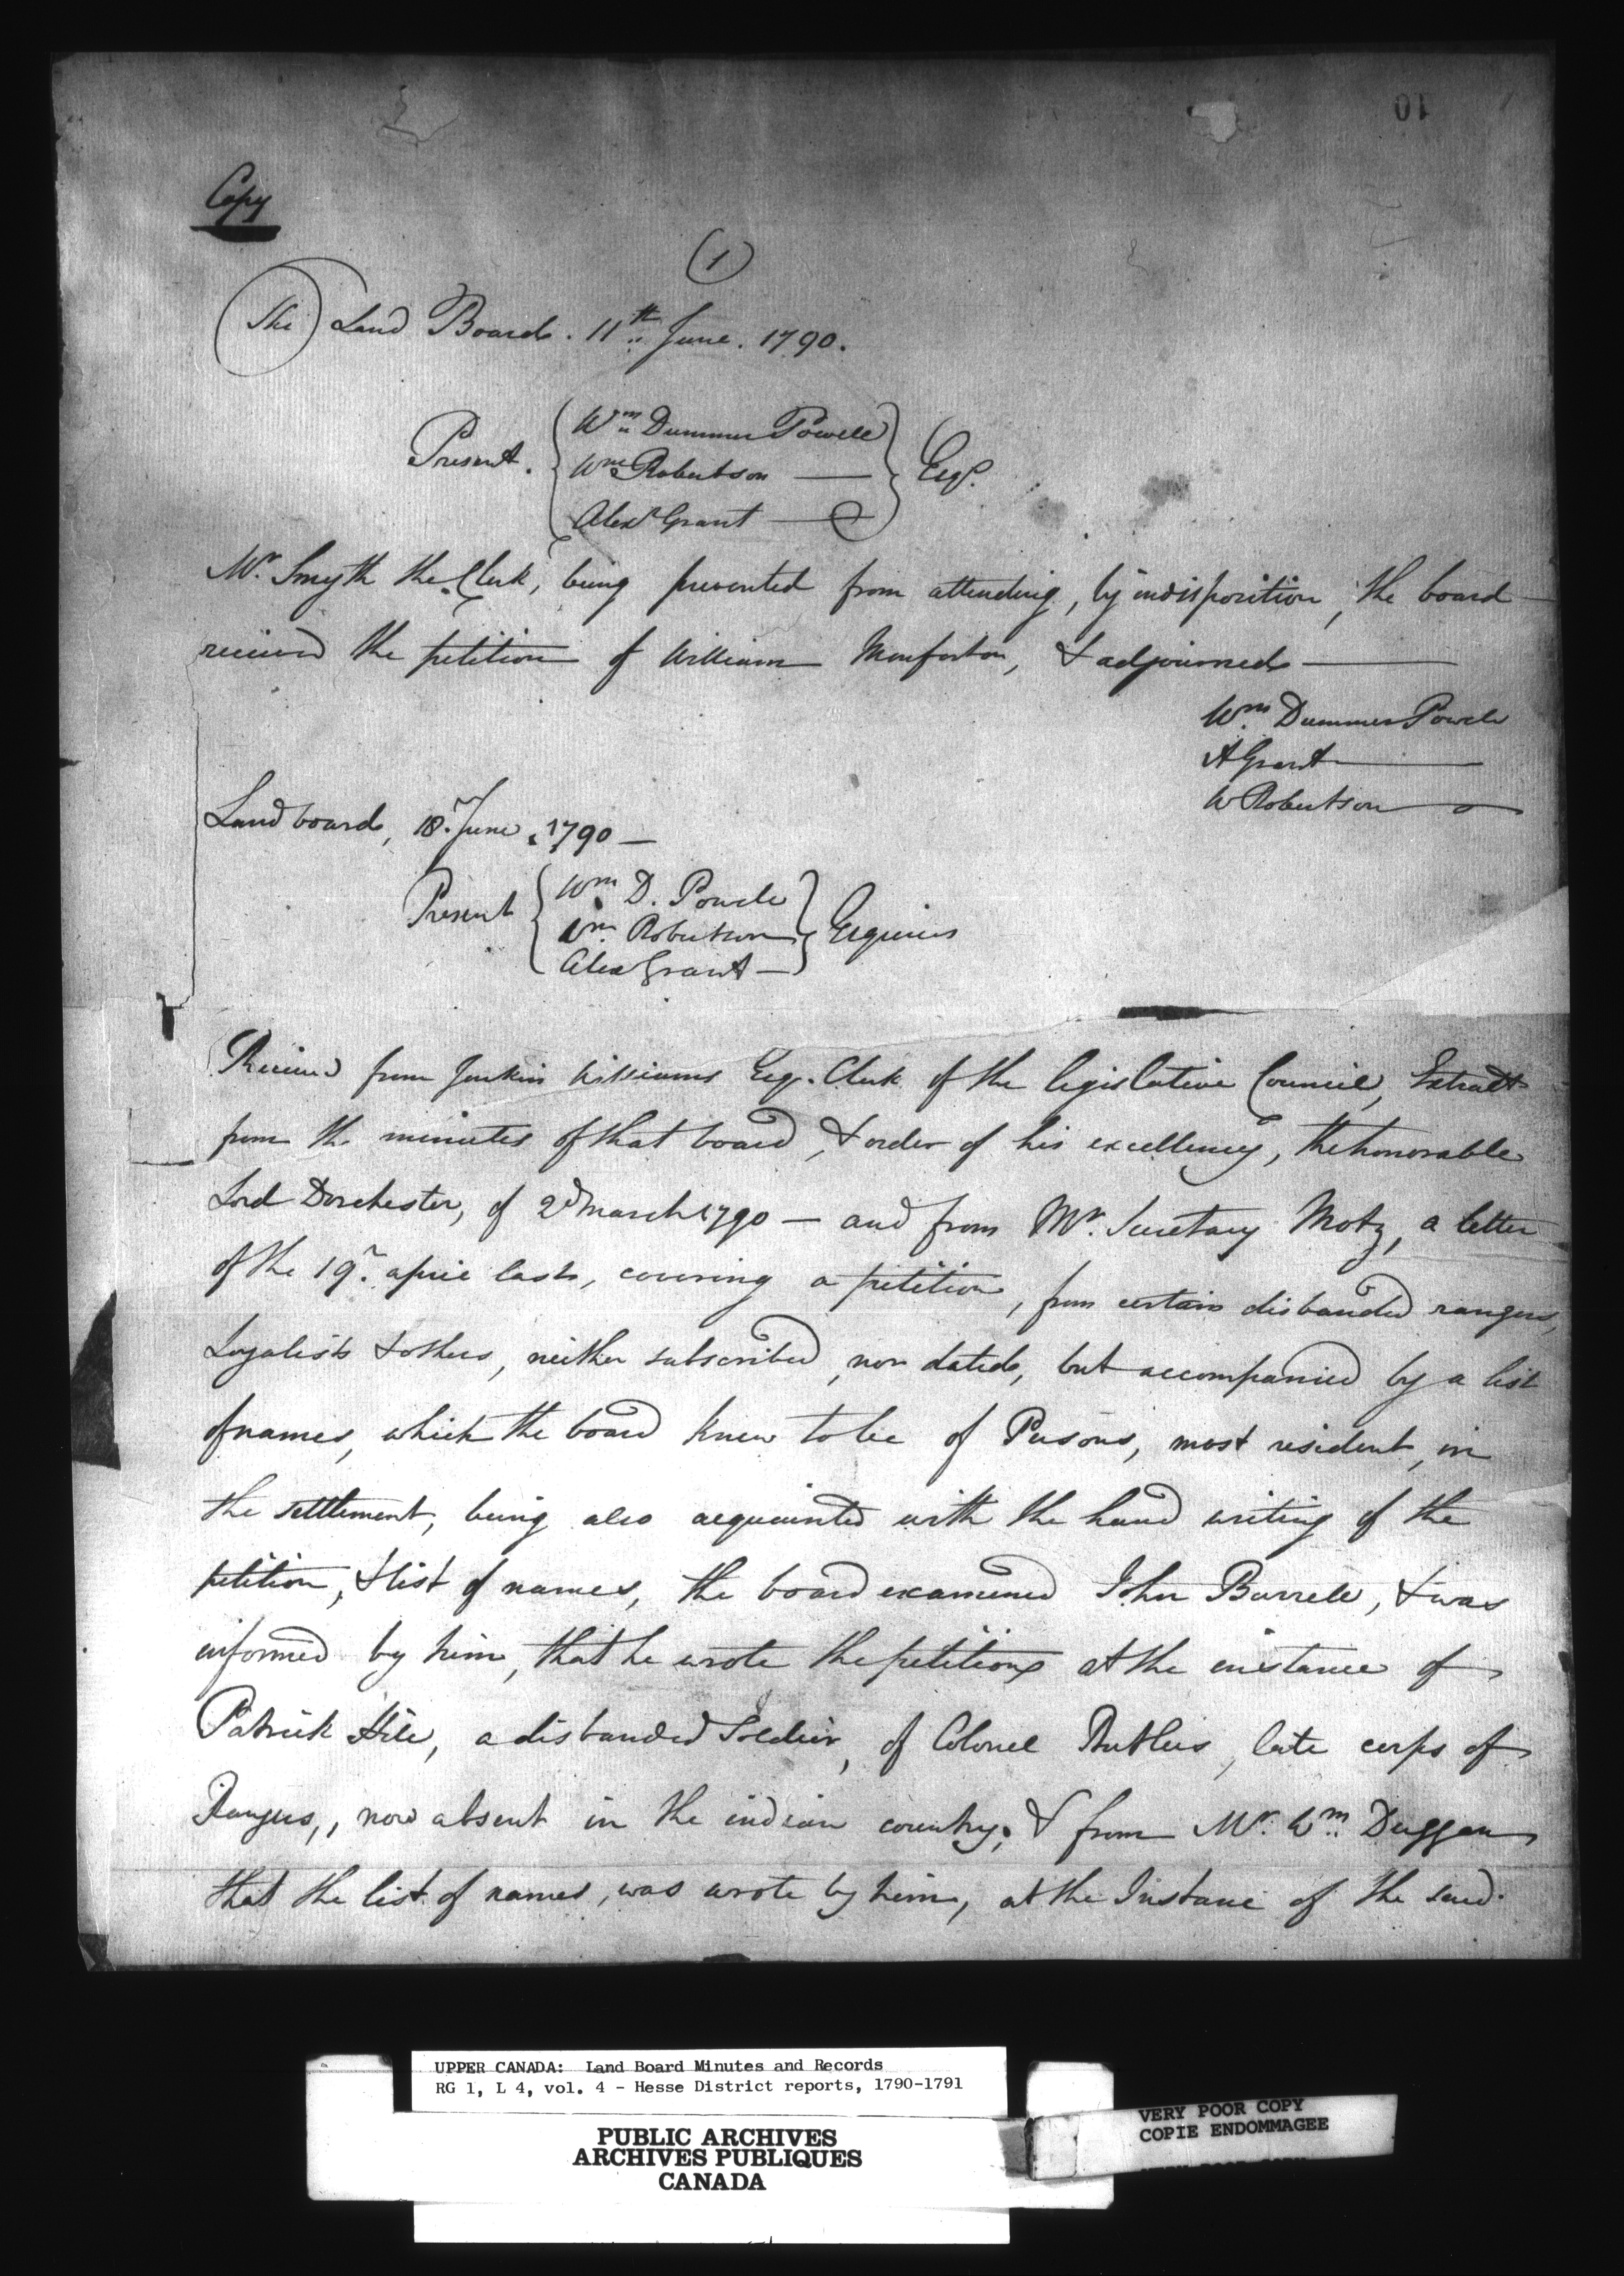 10
Copy
(1)
The Land Board. 11th June. 1790.
Present. Wm Dummer Powell
Wm Robertson — Esqr.
Alexr Grant —
Mr. Smyth the Clerk, being prevented from attending, by indisposition, the board
received the petition of William Monforton, & adjourned —
Wm Dummer Powell
A Grant —
W Robertson —
Land board, 18. June. 1790 —
Present Wm D. Powell
Wm Robertson Esquires
Alex Grant —
Received from Jenkin Williams Esqr. Clerk of the legislative Council, Extract
from the minutes of that board, & order of his excellency, the honorable
Lord Dorchester, of 2d March 1790 — and from Mr. Secretary Motz, a letter
of the 19. april last, covering a petition, from certain disbanded rangers,
Loyalists & others, neither subscribed, nor dated, but accompanied by a list
of names, which the board knew to be of Persons, most resident, in
the settlement, being also acquainted with the hand writing of the
petition, & list of names, the board examined John Burrell, & was
informed by him, that he wrote the petition at the instance of
Patrick Hill, a disbanded Soldier, of Colonel Butlers, late corps of
Rangers,, now absent in the indian country, & from Mr. Wm. Duggan
that the list of names, was wrote by him, at the Instance of the said
UPPER CANADA: Land Board Minutes and Records
RG 1, L 4, vol. 4 - Hesse District reports, 1790-1791
VERY POOR COPY
COPIE ENDOMMAGEE
PUBLIC ARCHIVES
ARCHIVES PUBLIQUES
CANADA